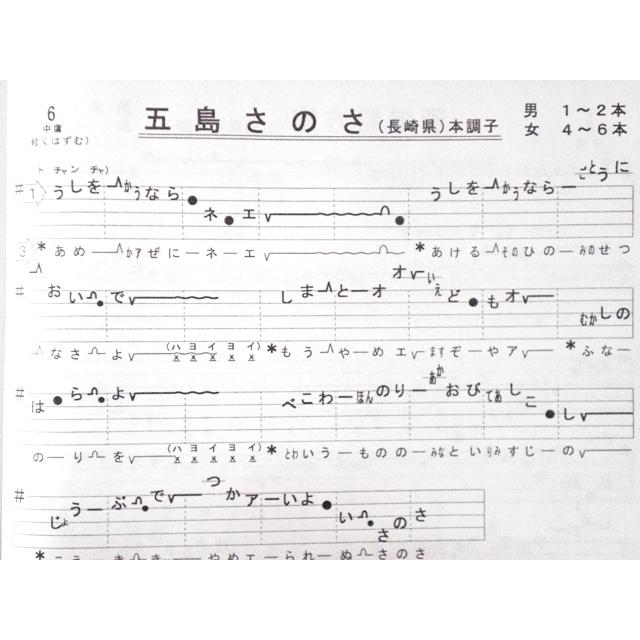 6
中庸
軽くはずむ)
五島さのさ (長崎県) 本調子
男 1～2本
女 4～6本
ト チャン チャ)
1 うしを かぅなら ネエ うしを かぅならー ごとうに
3 *あめー かアぜにーネーエ *あける そのひのー みのせつ
おい で しまーとーオ オ いえども オ むかしの
なさ よ (ハヨイヨイ) *もう やーめエ ますぞーやア *ふな
はら よ べこわーほんのりー あかおびてあしこし
のーり を (ハヨイヨイ) *とわいうーものの みなといりみすじーの
じょうーぶ で つかァーいよ い さのさ